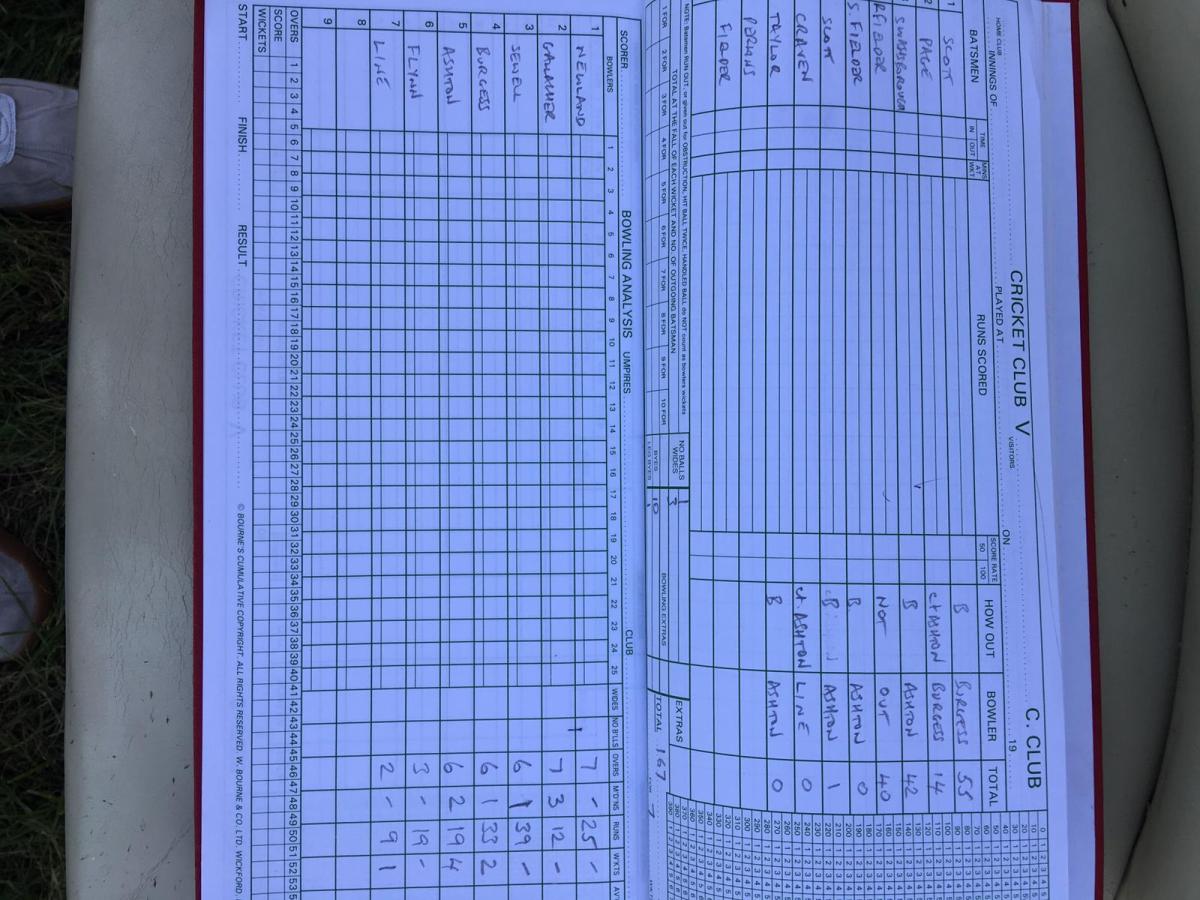 HOME CLUB INNINGS OF CRICKET CLUB V C. CLUB
PLAYED AT VISITORS ON 19
BATSMEN TIME IN OUT MINS AT WKT RUNS SCORED SCORE RATE 50 100 HOW OUT BOWLER TOTAL
1 SCOTT B BURGESS 55
2 PAGE ct ASHTON BURGESS 14
SWASBOROUGH B ASHTON 42
FIELDER NOT OUT 40
S. FIELDER B ASHTON 0
SCOTT B ASHTON 1
CRAVEN ct. ASHTON LINE 0
TAYLOR B ASHTON 0
PERKINS
FIELDER
NOTE: Batsmen RUN OUT, or given out for OBSTRUCTION, HIT BALL TWICE, HANDLED BALL do NOT count as bowlers wickets
TOTAL AT THE FALL OF EACH WICKET AND NO. OF OUTGOING BATSMAN
1 FOR 2 FOR 3 FOR 4 FOR 5 FOR 6 FOR 7 FOR 8 FOR 9 FOR 10 FOR
NO BALLS 1
WIDES 3
BYES 10
LEG BYES
BOWLING EXTRAS
EXTRAS
TOTAL 167 FOR 7
SCORER BOWLING ANALYSIS UMPIRES CLUB
BOWLERS 1 2 3 4 5 6 7 8 9 10 11 12 13 14 15 16 17 18 19 20 21 22 23 24 25 WIDES NO B'LLS OVERS M'D'NS RUNS W'KTS
1 NEWLAND 1 7 - 25 -
2 GALLAGHER 7 3 12 -
3 SEWELL 6 1 39 -
4 BURGESS 6 1 33 2
5 ASHTON 6 2 19 4
6 FLYNN 3 - 19 -
7 LINE 2 - 9 1
8
9
OVERS 1 2 3 4 5 6 7 8 9 10 11 12 13 14 15 16 17 18 19 20 21 22 23 24 25 26 27 28 29 30 31 32 33 34 35 36 37 38 39 40 41 42 43 44 45 46 47 48 49 50 51 52 53
SCORE
WICKETS
START FINISH RESULT © BOURNE'S CUMULATIVE COPYRIGHT. ALL RIGHTS RESERVED. W. BOURNE & CO. LTD. WICKFORD